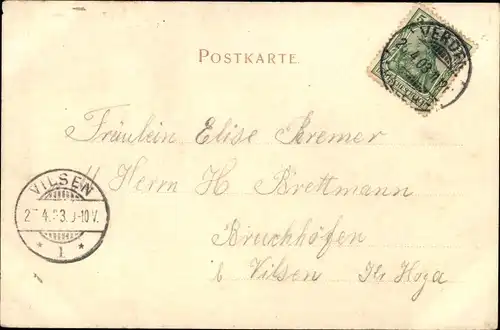 POSTKARTE.
VERDEN
4.03
Fräulein Elise Bremer
Herrn H Brettmann
VILSEN
4. 3. 9-10V.
* 1 *
Bruchhöfen
b Vilsen Kr Hoya